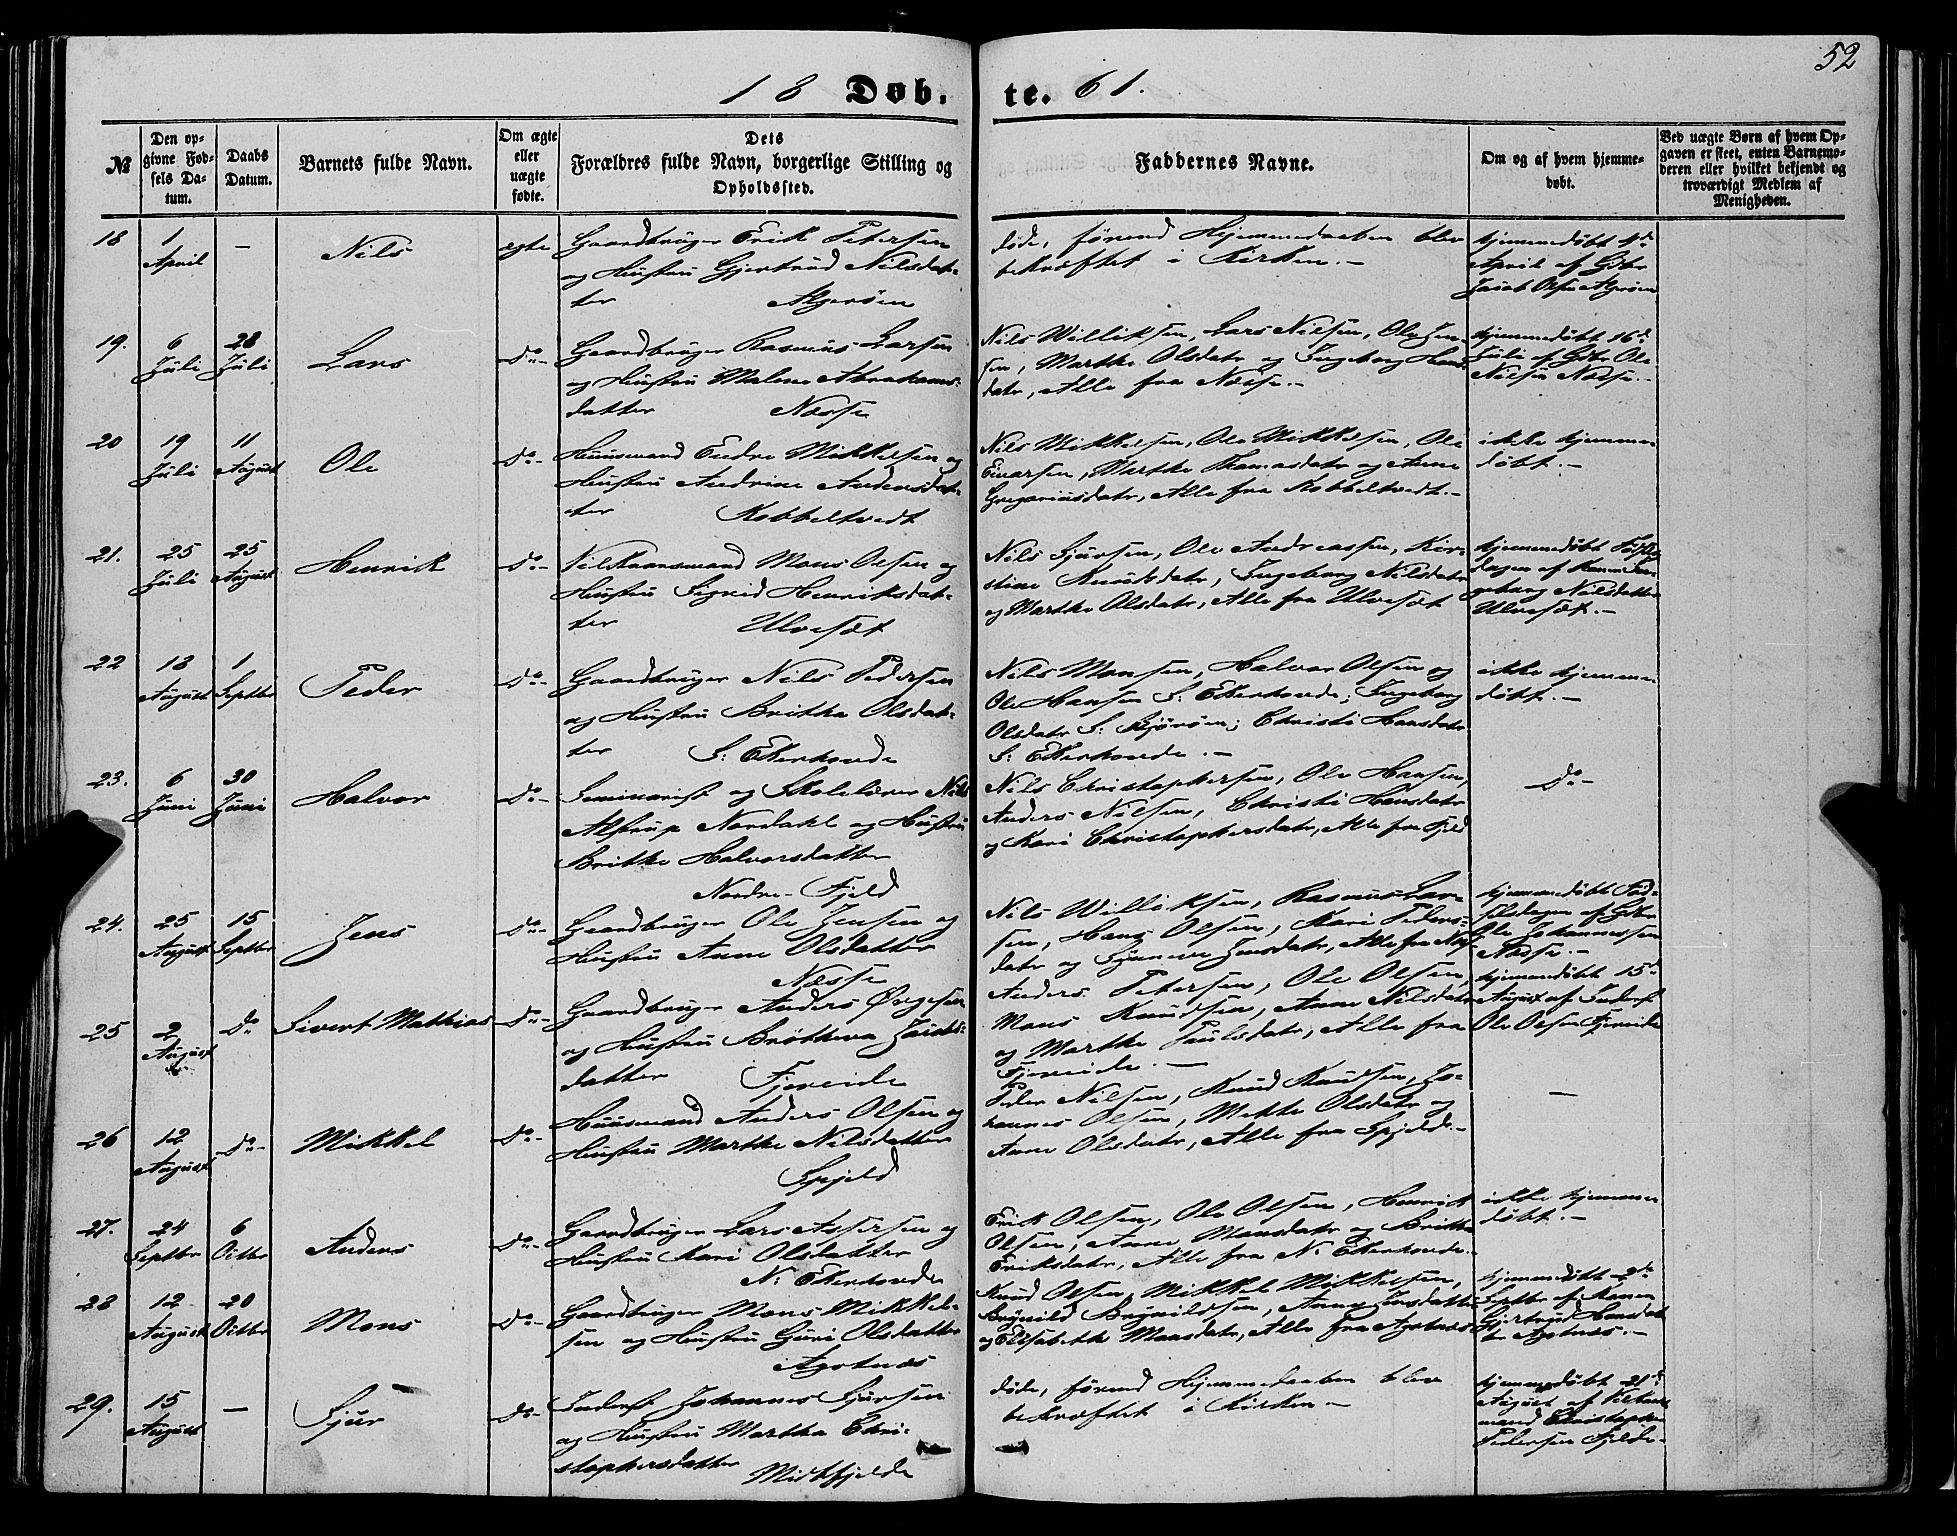 52
18 Døb. te. 61.
№
Den op-
givne Fød-
sels Da-
tum.
Daabs
Datum.
Barnets fulde Navn.
Om ægte
eller
uægte
fødte.
Dets
Forældres fulde Navn, borgerlige Stilling og
Opholdssted.
Faddernes Navne.
Om og af hvem hjemme-
døbt.
Ved uægte Børn af hvem Op-
gaven er skeet, enten Barnemo-
deren eller hvilket bekjendt og
troværdigt Medlem af
Menigheden.
18 1 April — Nils ægte
Gaardbruger Erik Petersen
og Hustru Gjertrud Nilsdat-
ter Algerøen
døde, førend Hjemmedaaben blev
bekræftet i Kirken.—
hjemmedøbt 4de
April af Gbr
Jacob Olsen Algerøen
19. 6 Juli 28 Juli Lars Do—
Gaardbruger Rasmus Larsen
og Hustru Malene Abrahams-
datter Næsse
Nils Williksen, Lars Nilsen, Ole Jen-
sen, Marthe Olsdatr og Ingeborg Hans-
datr, Alle fra Næsse.—
hjemmedøbt 16d
Juli af Gbr Ole
Nilsen Næsse.—
20 19 Juli 11 August Ole Do—
Huusmand Endre Mikkelsen og
Hustru Andrine Andersdat-
ter Kobbeltvedt
Nils Mikkelsen, Ole Mikkelsen, Ole
Einarsen, Marthe Thomasdatr og Anne
Gregoriusdatr, Alle fra Kobbeltvedt.—
ikke hjemme
døbt.—
21. 25 Juli 25 August Henrik Do—
Vilkaarsmand Mons Olsen og
Hustru Sigrid Henriksdat-
ter Ulvesæt
Nils Sjursen, Ole Andreassen, Kir-
stine Knudsdatr, Ingeborg Nilsdatr
og Marthe Olsdatr, Alle fra Ulvesæt
hjemmedøbt Fødsels
dagen af
Nilsdatter
Ulvesæt.—
22 18 August 1 Septbr Peder Do—
Gaardbruger Nils Pedersen
og Hustru Brithe Olsdat-
ter S: Ekerhovde
Nils Monsen, Halvor Olsen og
Ole Hansen S: Ekerhovde; Ingeborg
Olsdatr S: Bjørøen; Christi Hansdatr
S: Ekerhovde.—
ikke hjemme
døbt.—
23. 6 Juni 30 Juni Halvor Do—
Seminarist og Skolelærer Nils
Alstrup Nordahl og Hustru
Brithe Halvorsdatter
Nordre-Fjeld
Nils Christophersen, Ole Hansen,
Anders Nilsen, Christi Hansdatr
og Kari Christophersdatr, Alle fra Fjeld
Do—
24. 25 August 15 Septbr Jens Do—
Gaardbruger Ole Jensen og
Hustru Anne Olsdatter
Næsse
Nils Williksen, Rasmus Lar-
sen, Hans Olsen, Kari Peders-
datr og Synneve Jensdatr, Alle fra Næsse
hjemmedøbt Fød-
selsdagen af Gbr
Ole Johannessen
Næsse.—
25 2 August Do Sivert Mathias Do—
Gaardbruger Anders Ørgesen
og Hustru Brøtheva Jacobs-
datter Fjereide
Anders Petersen, Ole Olsen,
Mons Knudsen, Anne Nilsdatr
og Marthe Paulsdatr, Alle fra
Fjereide.—
hjemmedøbt 15de
August af Inderst
Ole Olsen Fjereide
26 12 August Do— Mikkel Do—
Huusmand Anders Olsen og
Hustru Marthe Nilsdatter
Spjeld
Peder Nilsen, Knud Knudsen, Jo-
hannes Olsen, Mette Olsdatr og
Anne Olsdatr, Alle fra Spjeld.—
—
27. 24 Septbr 6 Octbr Anders Do—
Gaardbruger Lars Assersen og
Hustru Kari Olsdatter
N: Ekerhovde
Erik Olsen, Ole Olsen, Henrik
Olsen, Anne Monsdatr og Brithe
Eriksdatr, Alle fra N: Ekerhovde.—
ikke hjemme
døbt.—
28 12 August 20 Octbr Mons Do—
Gaardbruger Mons Mikkel-
sen og Hustru Guri Olsdatter
Agotnæs
Knud Olsen, Mikkel Mikkelsen,
Brynild Brynildsen, Anne Jensdatter
og Elisabethe Monsdatr, Alle fra Agotnæs
hjemmedøbt 2de
Septbr af Konen
Gjertrud Hansdat-
ter Agotnæs.—
29. 15 August — Sjur Do—
Inderst Johannes Sjursen
og Hustru Martha Chri-
stophersdatter Midtfjelde
døde, førend Hjemmedaaben blev
bekræftet i Kirken—
hjemmedøbt 21de
August af Vilkaars
mand Christopher
Pedersen Fjelde.